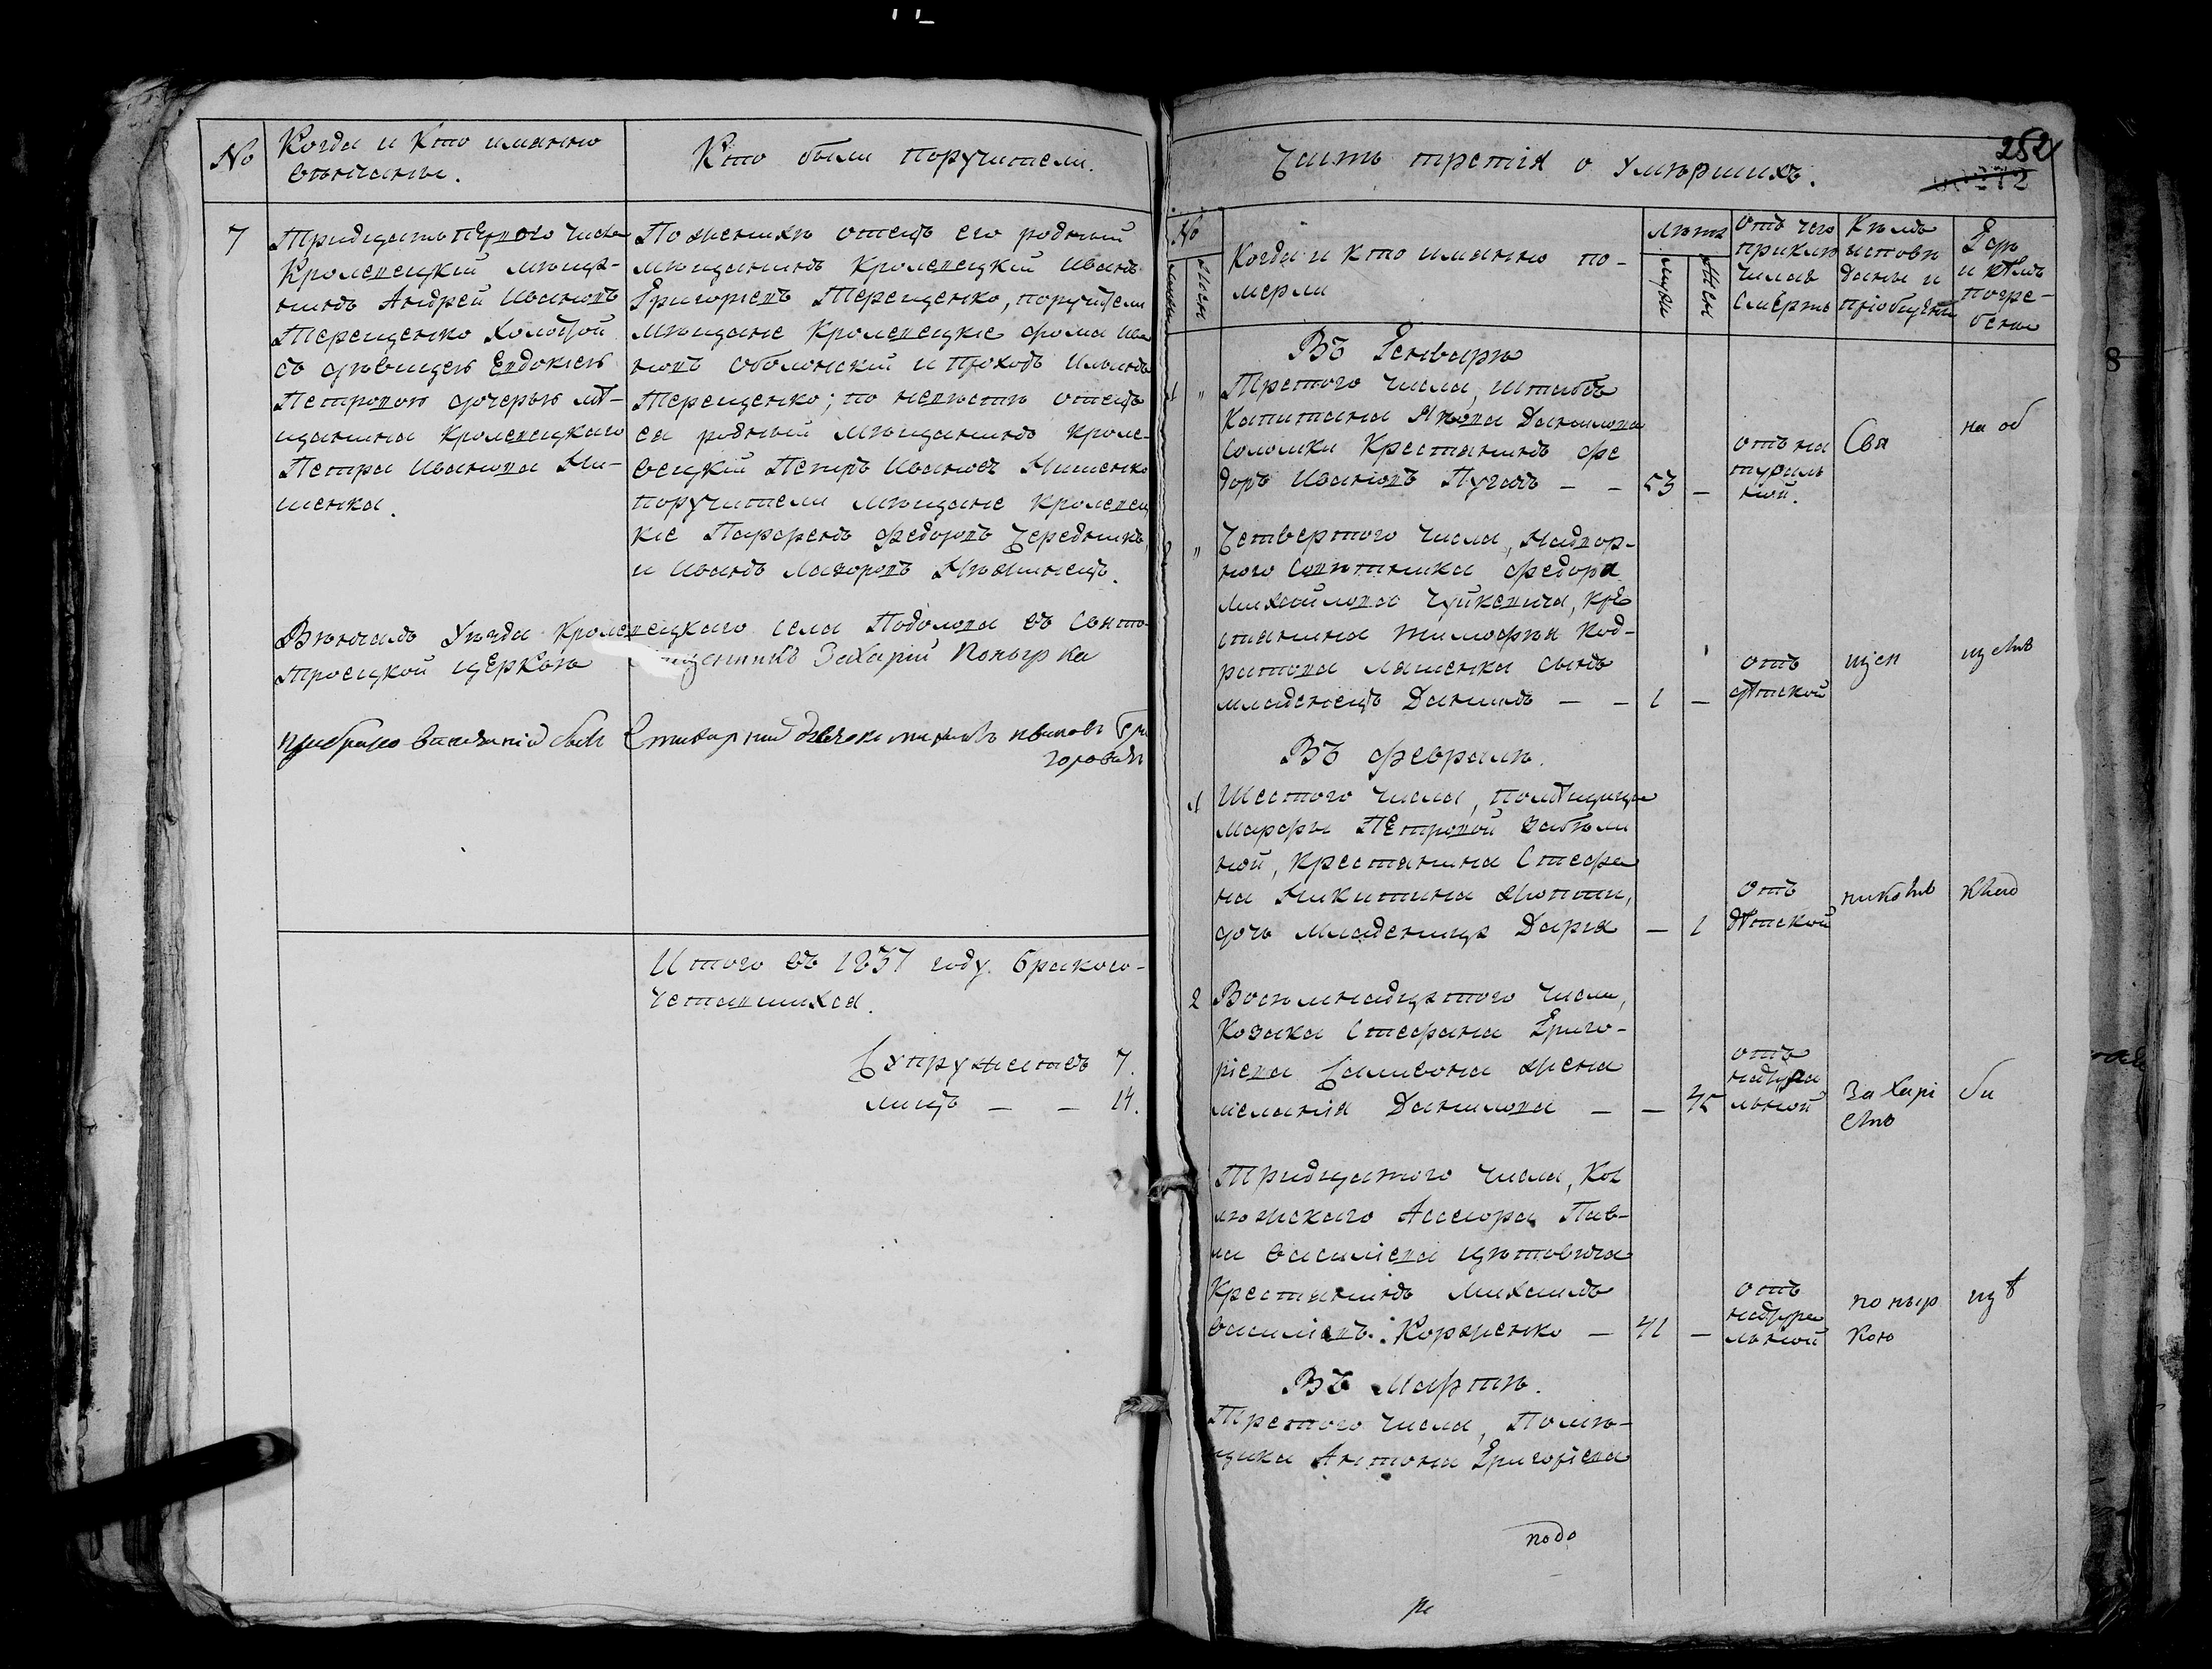 No
Когда и Кто именно
венчаны.
Кто были поручители.
7
Тридцать первого числа
Кролевецкий мѣща-
нинъ Андрей Ивановъ
Терещенко Холостой
съ дѣвицею Евдокіею
Петровою дочерью мѣ-
щанина Кролевецкаго
Петра Иванова Ми-
шенка.
По женихѣ отецъ его родный
мѣщанинъ Кролевецкій Иванъ
Григоріевъ Терещенко, поручители
мѣщане Кролевецкіе Фома Ива
новъ Оболонскій и Прохоръ Ильинъ
Терещенко; по невѣстѣ отецъ
ея родный мѣщанинъ Кроле-
вецкій Петръ Ивановъ Мишенко
поручители мѣщане Кролевец
кіе Парфенъ Федоровъ Чередникъ,
и Иванъ
Вѣнчалъ Уезда Кролевецкаго села Подолова въ Свято-
Троецкой церкви Священникъ Захарій Попырка
при
Итого въ 1837 году. бракосо-
четавшихся.
Супружествъ 7.
лицъ — — 14.
252
Часть третія о умѣршихъ.
No
Когда и кто именно по-
мерли
лѣта
мужес
женс
Отъ чего
приклю
чилась
Смерть
Кѣмъ
исповѣ
даны и
пріобщены
Гдѣ
и кѣмъ
погре-
бены
Въ Генварѣ
1 "
Третого числа, Штабъ
Капитана Якова Данилова
Соломки Крестянинъ Фе
доръ Ивановъ Пугачъ — — 53 —
отъ на
тураль
ной.
Свя
на об
"
Четвертого числа, Надвор-
ного Совѣтника Федора
Михайлова Чуйкевича, кре
стянина Тимофѣя Код-
ратова Ляшенка сынъ
младенецъ Данилъ — — 1 —
отъ
дѣтской
Въ Февралѣ.
1
Шестого числа, помѣщицы
Марфы Петровой Забѣли
ной, крестянина Стефа
на Никитина
дочь младеница Дарія — 1
Отъ
дѣтской
2
Восѣмнадцятого числа,
Козака Стефана Григо-
ріева Самсона жена
Меланія Данилова — — 45
отъ
натура
льной
Захарі
ем
Тридцятого числа, Кол
лѣжскаго Асесора Пав-
ла Василіева Цѣтовича
Крестянинъ Михаилъ
Василіевъ Корженко — 41 —
отъ
натура
льной
попыр
кою
Въ Мартѣ.
Третого числа, Помѣ-
щика Антона Григоріева
подо